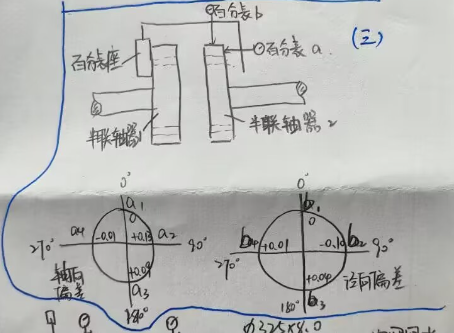 百分表b
百分表座
百分表a
(三)
半联轴器1
半联轴器2
0°
a1
0
a4 -0.01 +0.13 a2
270° 90°
+0.09
轴向偏差
a3
180°
0°
b1
0
b4 +0.01 -0.10 b2
270° 90°
+0.09
径向偏差
180° b3
Φ325×8.0